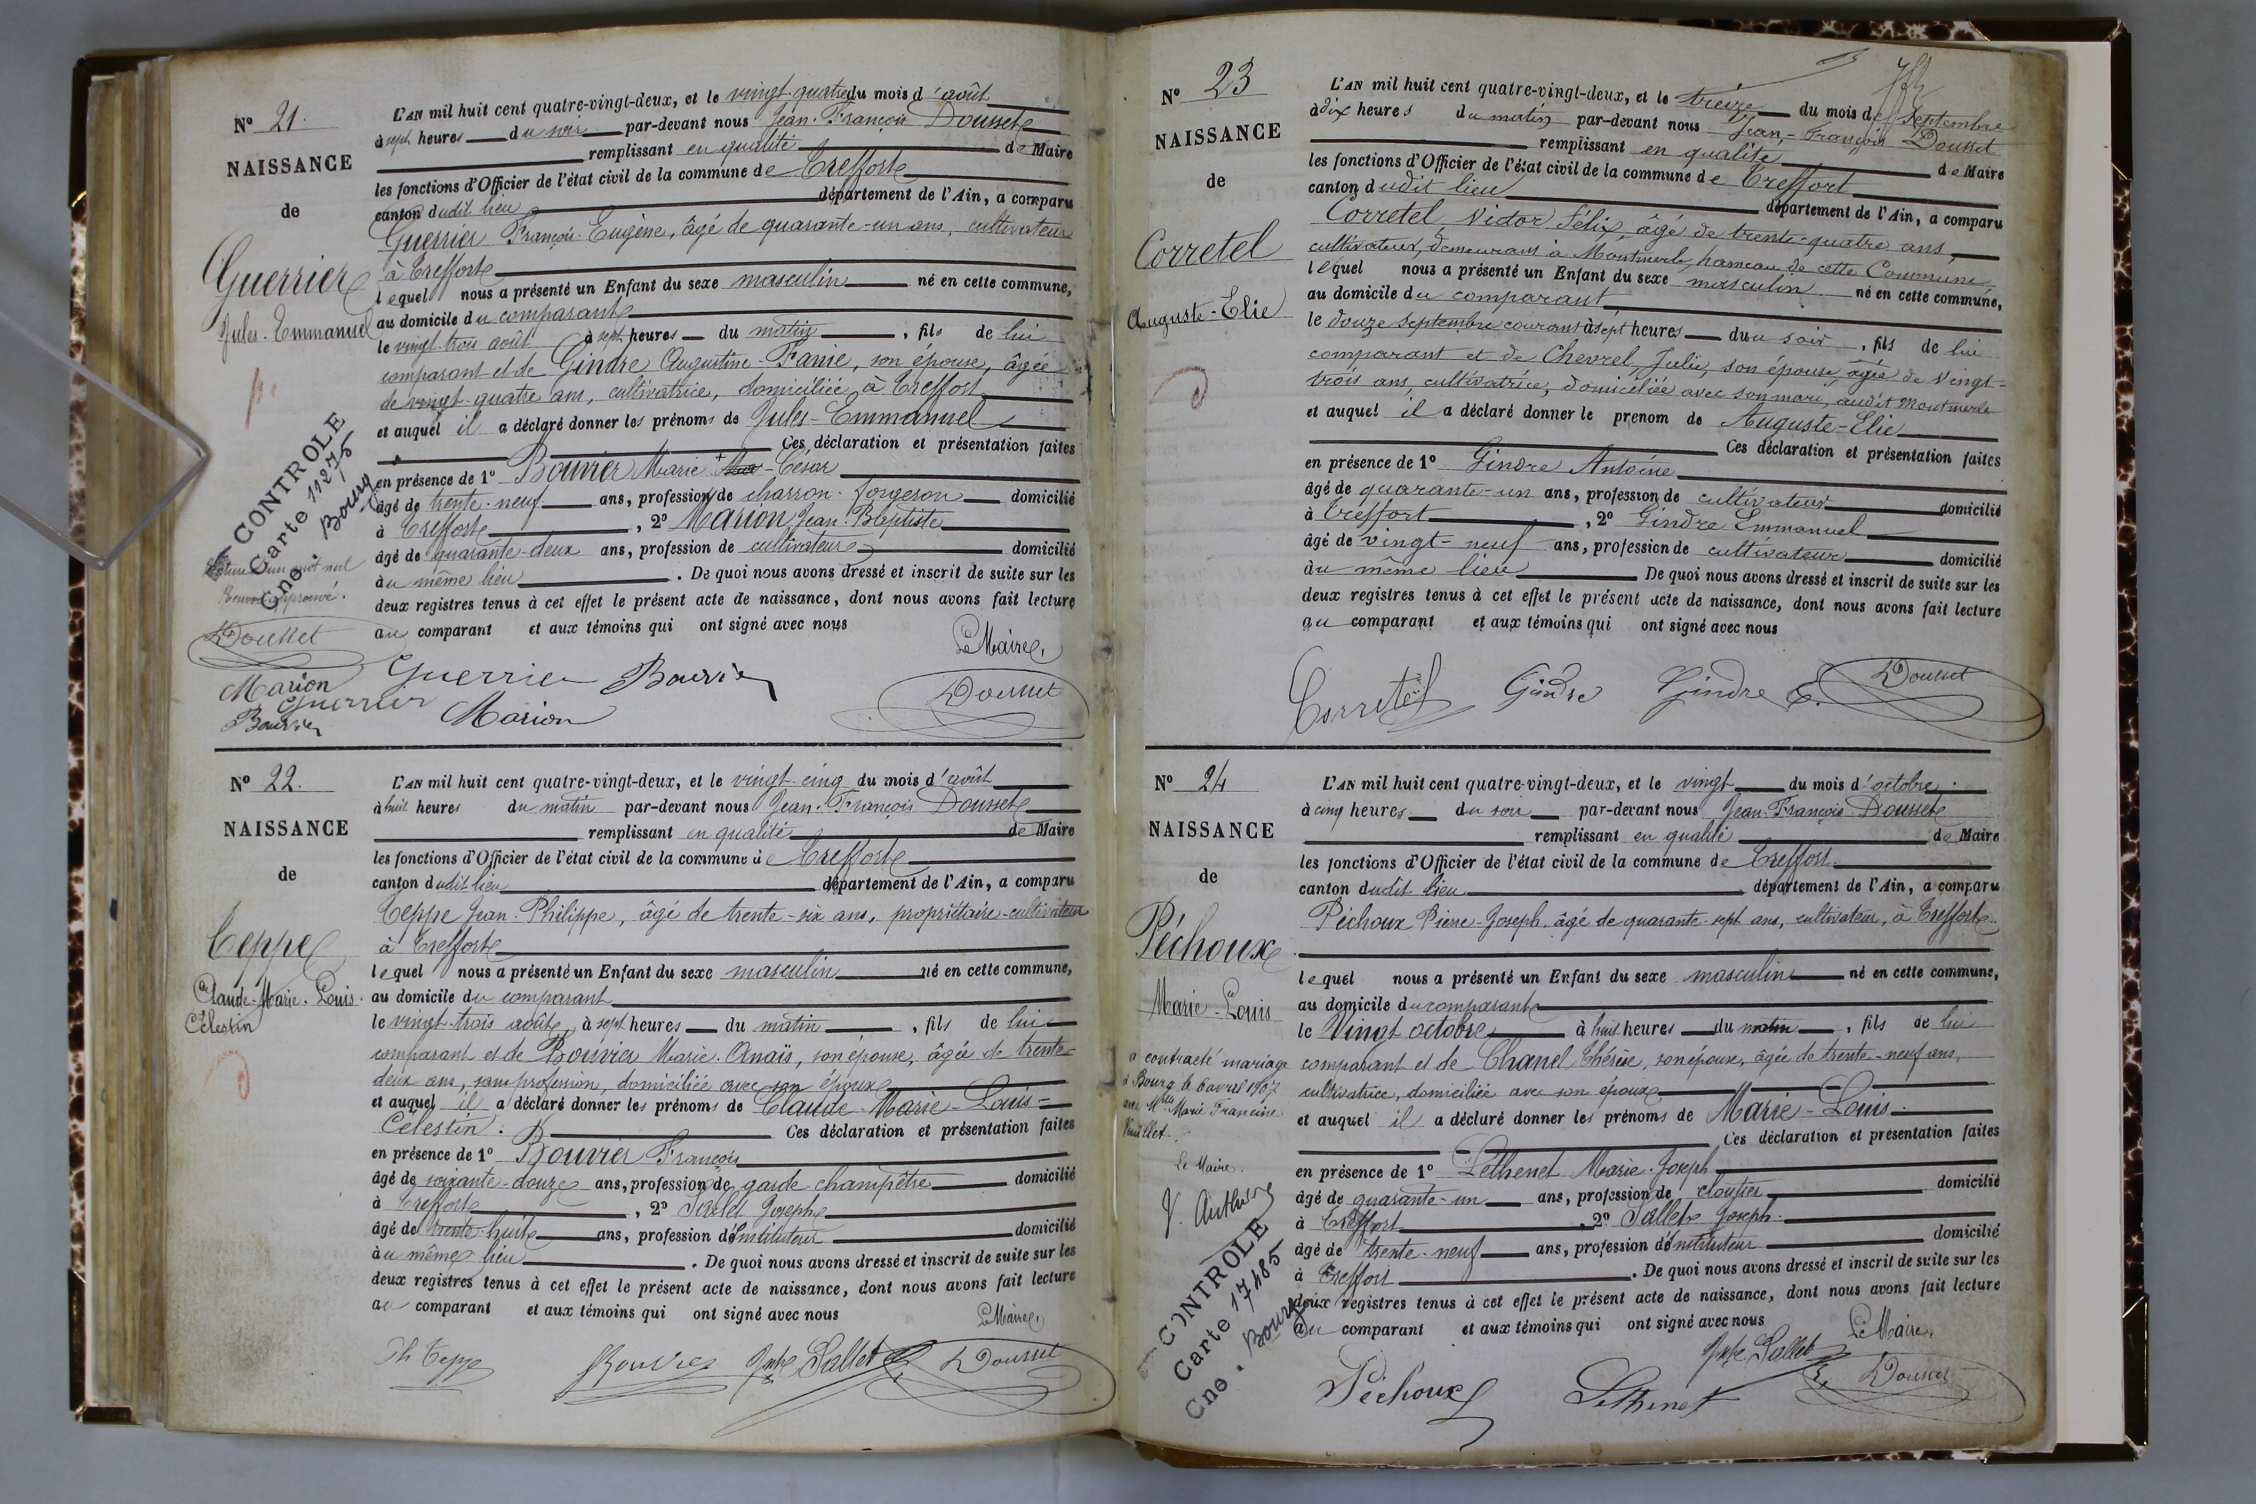 N° 21.
NAISSANCE
de
Guerrier
Jules-Emmanuel
CONTROLE
Carte 11275
Cne. Bourg
Dousset
Marion
Guerrier
Bouvier
L'AN mil huit cent quatre-vingt-deux, et le vingt-quatre du mois d'août
à sept heures du soir par-devant nous Jean-François Dousset
remplissant en qualité de Maire
les fonctions d'Officier de l'état civil de la commune de Treffort
canton dudit lieu département de l'Ain, a comparu
Guerrier François-Eugène, âgé de quarante-un ans, cultivateur
à Treffort
lequel nous a présenté un Enfant du sexe masculin né en cette commune,
au domicile du comparant
le vingt-trois août à sept heures du matin, fils de lui
comparant et de Gindre Augustine-Fanie, son épouse, âgée
de vingt-quatre ans, cultivatrice, domiciliée à Treffort
et auquel il a déclaré donner les prénoms de Jules-Emmanuel
Ces déclaration et présentation faites
en présence de 1° Bouvier Marie-César
âgé de trente-neuf ans, profession de charron-forgeron domicilié
à Treffort, 2° Marion Jean-Baptiste
âgé de quarante-deux ans, profession de cultivateur domicilié
au même lieu. De quoi nous avons dressé et inscrit de suite sur les
deux registres tenus à cet effet le présent acte de naissance, dont nous avons fait lecture
au comparant et aux témoins qui ont signé avec nous
Le Maire,
Guerrier Bouvier
Marion
Dousset
N° 22.
NAISSANCE
de
Teppe
Claude-Marie-Louis-
Célestin
L'AN mil huit cent quatre-vingt-deux, et le vingt-cinq du mois d'août
à huit heures du matin par-devant nous Jean-François Dousset
remplissant en qualité de Maire
les fonctions d'Officier de l'état civil de la commune de Treffort
canton dudit lieu département de l'Ain, a comparu
Teppe Jean-Philippe, âgé de trente-six ans, propriétaire-cultivateur
à Treffort
lequel nous a présenté un Enfant du sexe masculin né en cette commune,
au domicile du comparant
le vingt-trois août, à sept heures du matin, fils de lui
comparant et de Bouvier Marie-Anaïs, son épouse, âgée de trente-
deux ans, sans profession, domiciliée avec son époux
et auquel il a déclaré donner les prénoms de Claude-Marie-Louis-
Célestin. Ces déclaration et présentation faites
en présence de 1° Bouvier François
âgé de soixante-douze ans, profession de garde champêtre domicilié
à Treffort, 2° Sallet Joseph
âgé de trente-huit ans, profession d'Instituteur domicilié
au même lieu. De quoi nous avons dressé et inscrit de suite sur les
deux registres tenus à cet effet le présent acte de naissance, dont nous avons fait lecture
au comparant et aux témoins qui ont signé avec nous
Le Maire,
Ph Teppe Bouvier Jph Sallet Dousset
N° 23
NAISSANCE
de
Corretel
Auguste-Elie
L'AN mil huit cent quatre-vingt-deux, et le treize du mois de Septembre
à dix heures du matin par-devant nous Jean-François Dousset
remplissant en qualité de Maire
les fonctions d'Officier de l'état civil de la commune de Treffort
canton dudit lieu département de l'Ain, a comparu
Corretel, Victor Félix, âgé de trente-quatre ans,
cultivateur, demeurant à Montmerle, hameau de cette Commune,
lequel nous a présenté un Enfant du sexe masculin né en cette commune,
au domicile du comparant
le douze septembre courant à sept heures du soir, fils de lui
comparant et de Chevrel, Julie, son épouse, âgée de vingt-
trois ans, cultivatrice, domiciliée avec son mari, audit Montmerle
et auquel il a déclaré donner le prenom de Auguste-Elie
Ces déclaration et présentation faites
en présence de 1° Gindre Antoine
âgé de quarante-un ans, profession de cultivateur domicilié
à Treffort, 2° Gindre Emmanuel
âgé de vingt-neuf ans, profession de cultivateur domicilié
au même lieu De quoi nous avons dressé et inscrit de suite sur les
deux registres tenus à cet effet le présent acte de naissance, dont nous avons fait lecture
au comparant et aux témoins qui ont signé avec nous
Corretel Gindre Gindre E. Dousset
N° 24
NAISSANCE
de
Péchoux
Marie-Louis
a contracté mariage
à Bourg le 6 avril 1907
avec Marie Francine
Vuillet.
Le Maire.
CONTROLE
Carte 17485
Cne. Bourg
L'AN mil huit cent quatre-vingt-deux, et le vingt du mois d'octobre,
à cinq heures du soir par-devant nous Jean-François Dousset
remplissant en qualité de Maire
les fonctions d'Officier de l'état civil de la commune de Treffort
canton dudit lieu département de l'Ain, a comparu
Péchoux Pierre-Joseph, âgé de quarante-sept ans, cultivateur, à Treffort
lequel nous a présenté un Enfant du sexe masculin né en cette commune,
au domicile du comparant
le Vingt octobre à huit heures du matin, fils de lui
comparant et de Chanel Thérèse, son épouse, âgée de trente-neuf ans,
cultivatrice, domiciliée avec son époux
et auquel il a déclaré donner les prénoms de Marie-Louis.
Ces déclaration et présentation faites
en présence de 1° Pethenet Marie-Joseph
âgé de quarante-un ans, profession de cloutier domicilié
à Treffort, 2° Sallet Joseph
âgé de trente-neuf ans, profession d'Instituteur domicilié
à Treffort. De quoi nous avons dressé et inscrit de suite sur les
deux registres tenus à cet effet le présent acte de naissance, dont nous avons fait lecture
au comparant et aux témoins qui ont signé avec nous
Le Maire,
Péchoux Jph Sallet Dousset